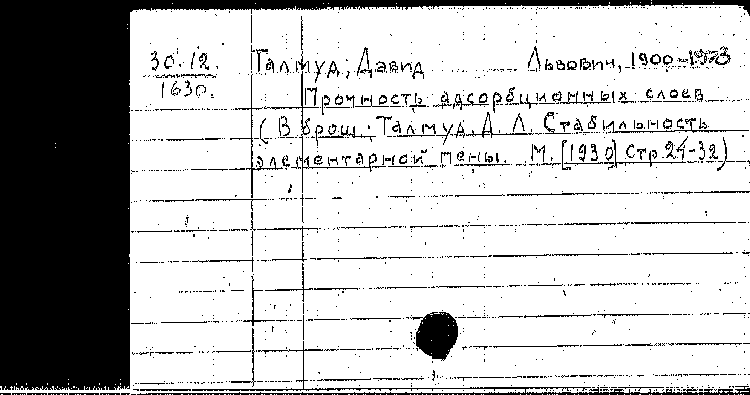 30.12.
1630.
Талмуд, Давид Львович, 1900-1973
Прочность адсорбционных слоев
(В брош: Талмуд, Д. Л. Стабильность
элементарной пены. М. [1930] Стр. 24-32)